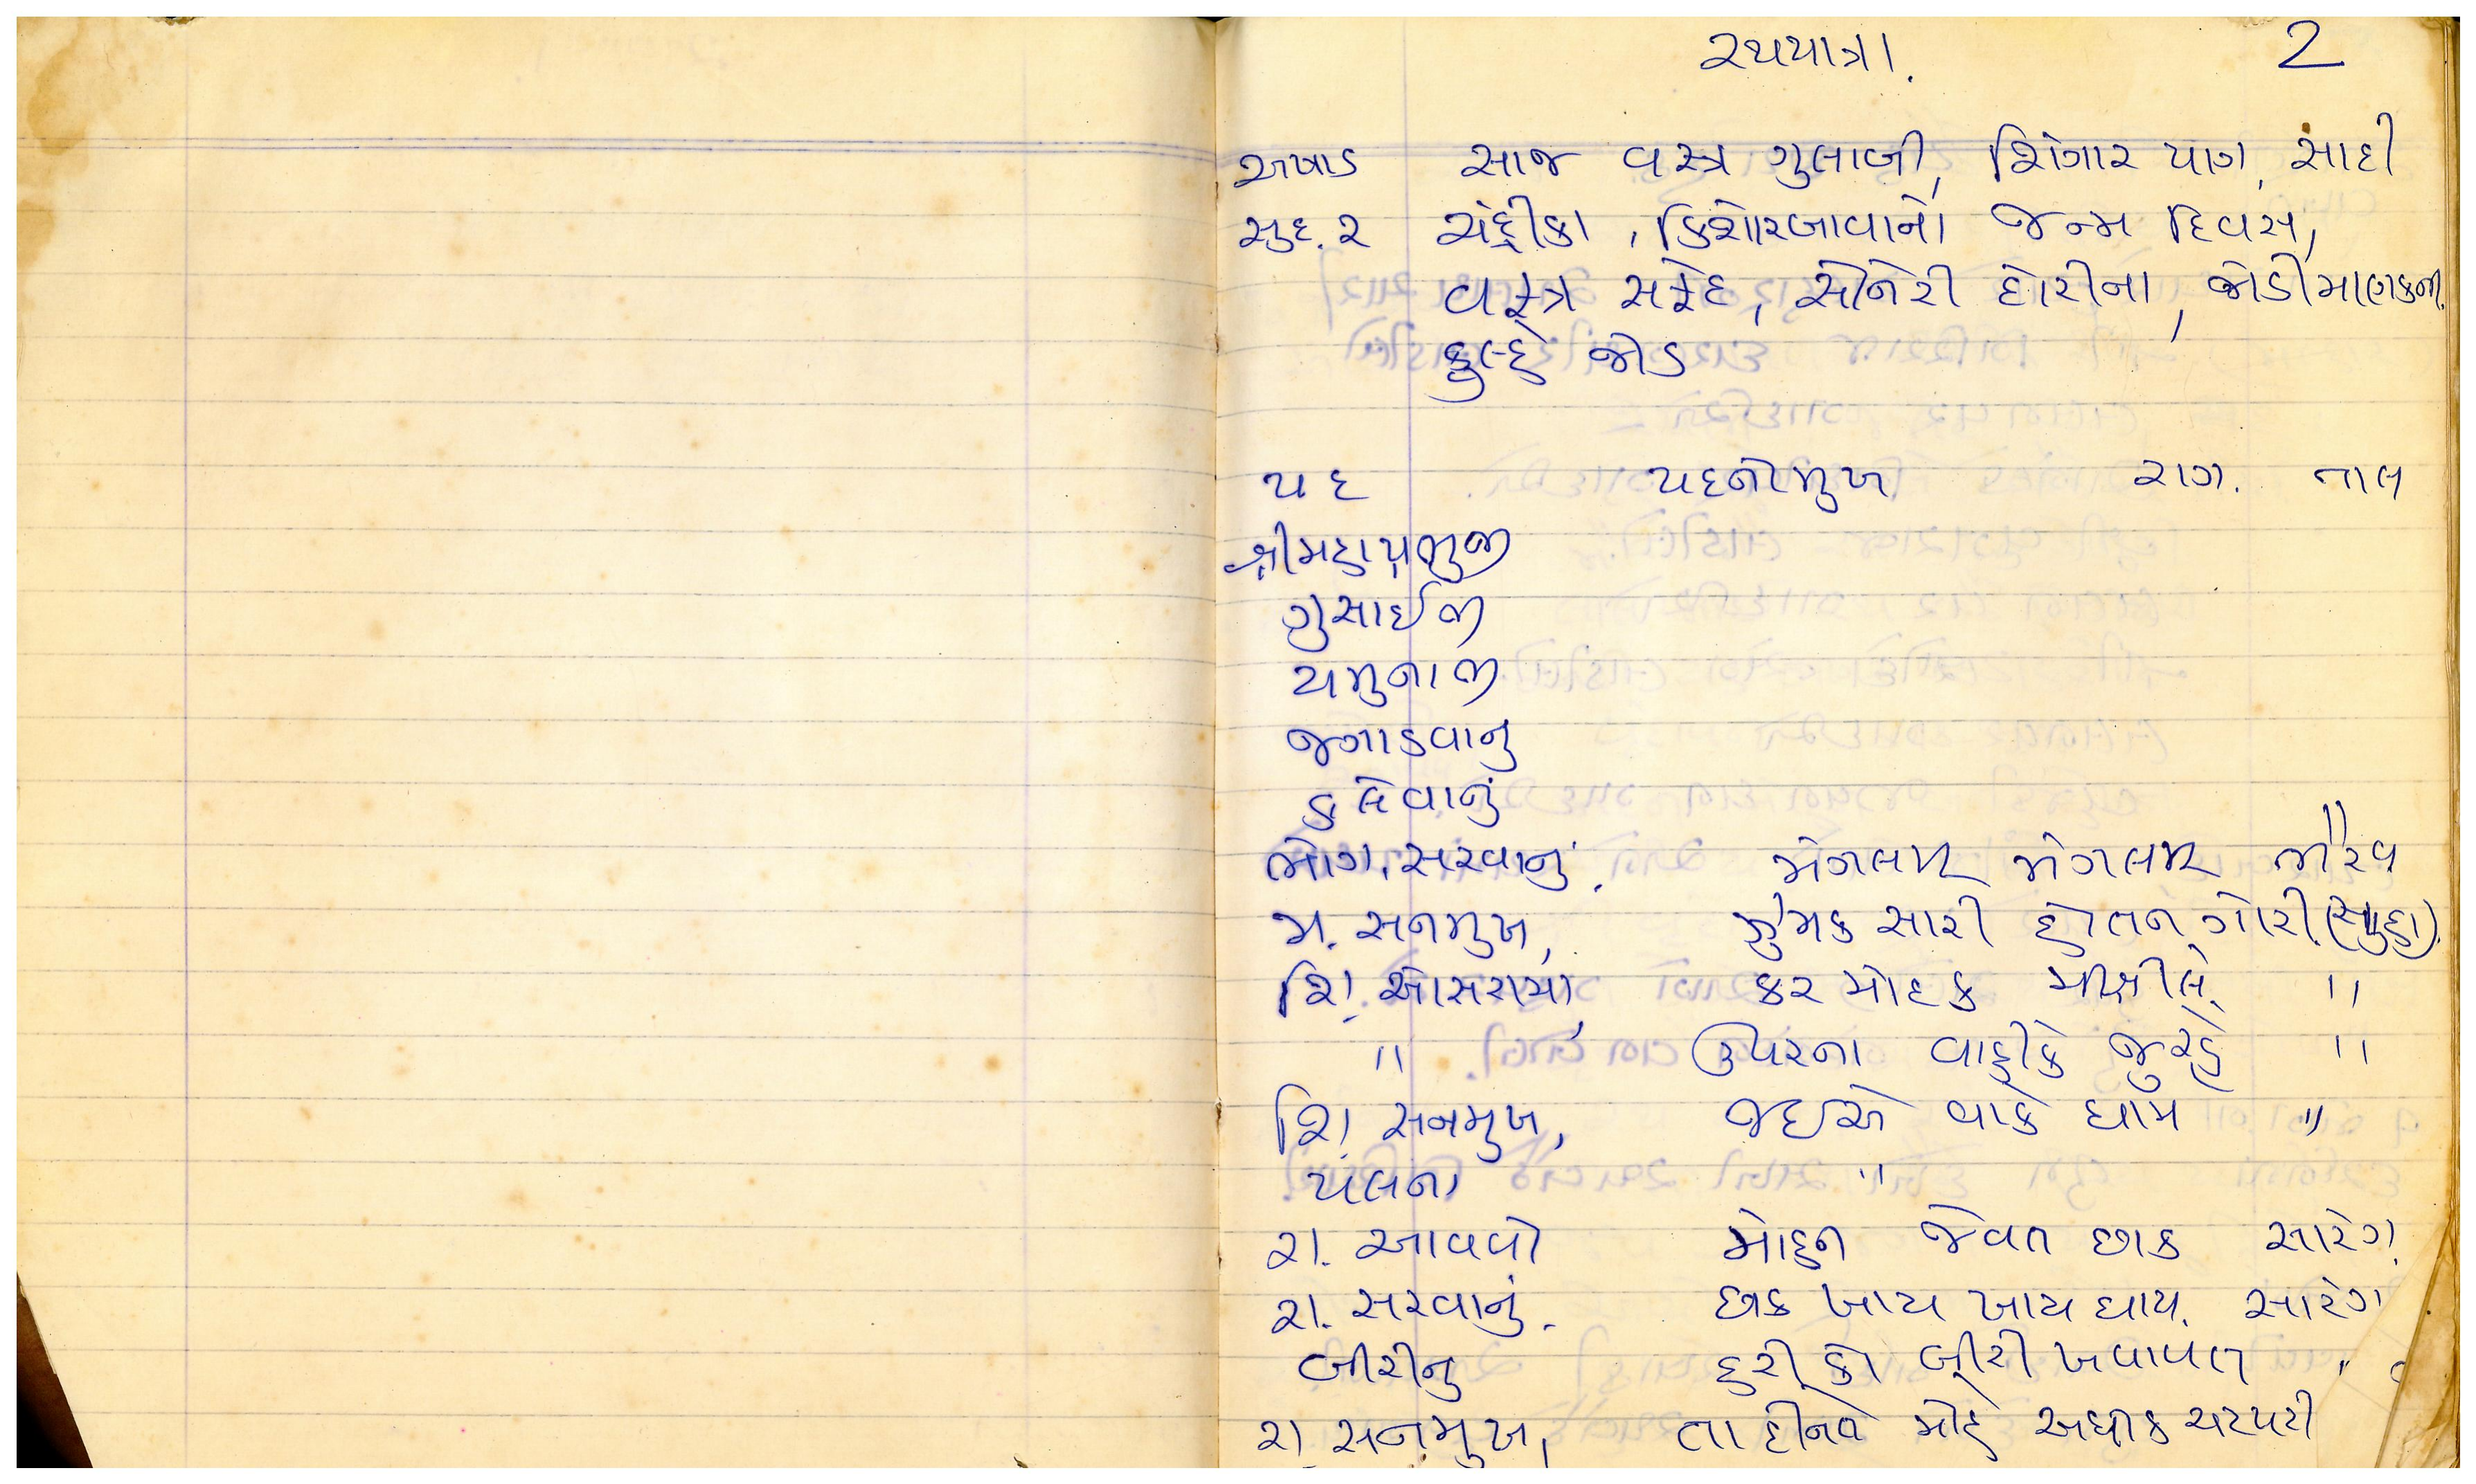 રથયાત્રા. 2
અષાડ સાજ વસ્ત્ર ગુલાબી, શિંગાર પાગ, સાદી
સુદ. ૨ ચંદ્રીકા, કિશોરબાવાનો જન્મ દિવસ,
વસ્ત્ર સફેદ, સોનેરી દોરીના, જોડી માણકની.
કુલ્હે જોડ
પદ પદનોમુખ રાગ. તાલ
શ્રીમહાપ્રભુજી
ગુસાઈજી
યમુનાજી
જગાડવાનુ
કલેવાનું
ભોગ. સરવાનું. મંગલમ મંગલમ ભૈરવ
મ. સનમુખ, ઝુમક સારી હોતન ગોરી (સુહા).
શિં. ઓસરામાં, કર મોદક "
" ઉપરના વાહીકે જુરહે "
શિં સનમુખ, જઇએ વાકે ધામ "
પલના "
રા. આવવો મોહન જેંવત છાક સારંગ.
રા. સરવાનું. છાક ખાય ખાય ધાય. સારંગ
બીરીનુ હરી કો બીરી ખવાવત "
રા. સનમુખ, તા દીનતે મોહે અધીક ચટપટી